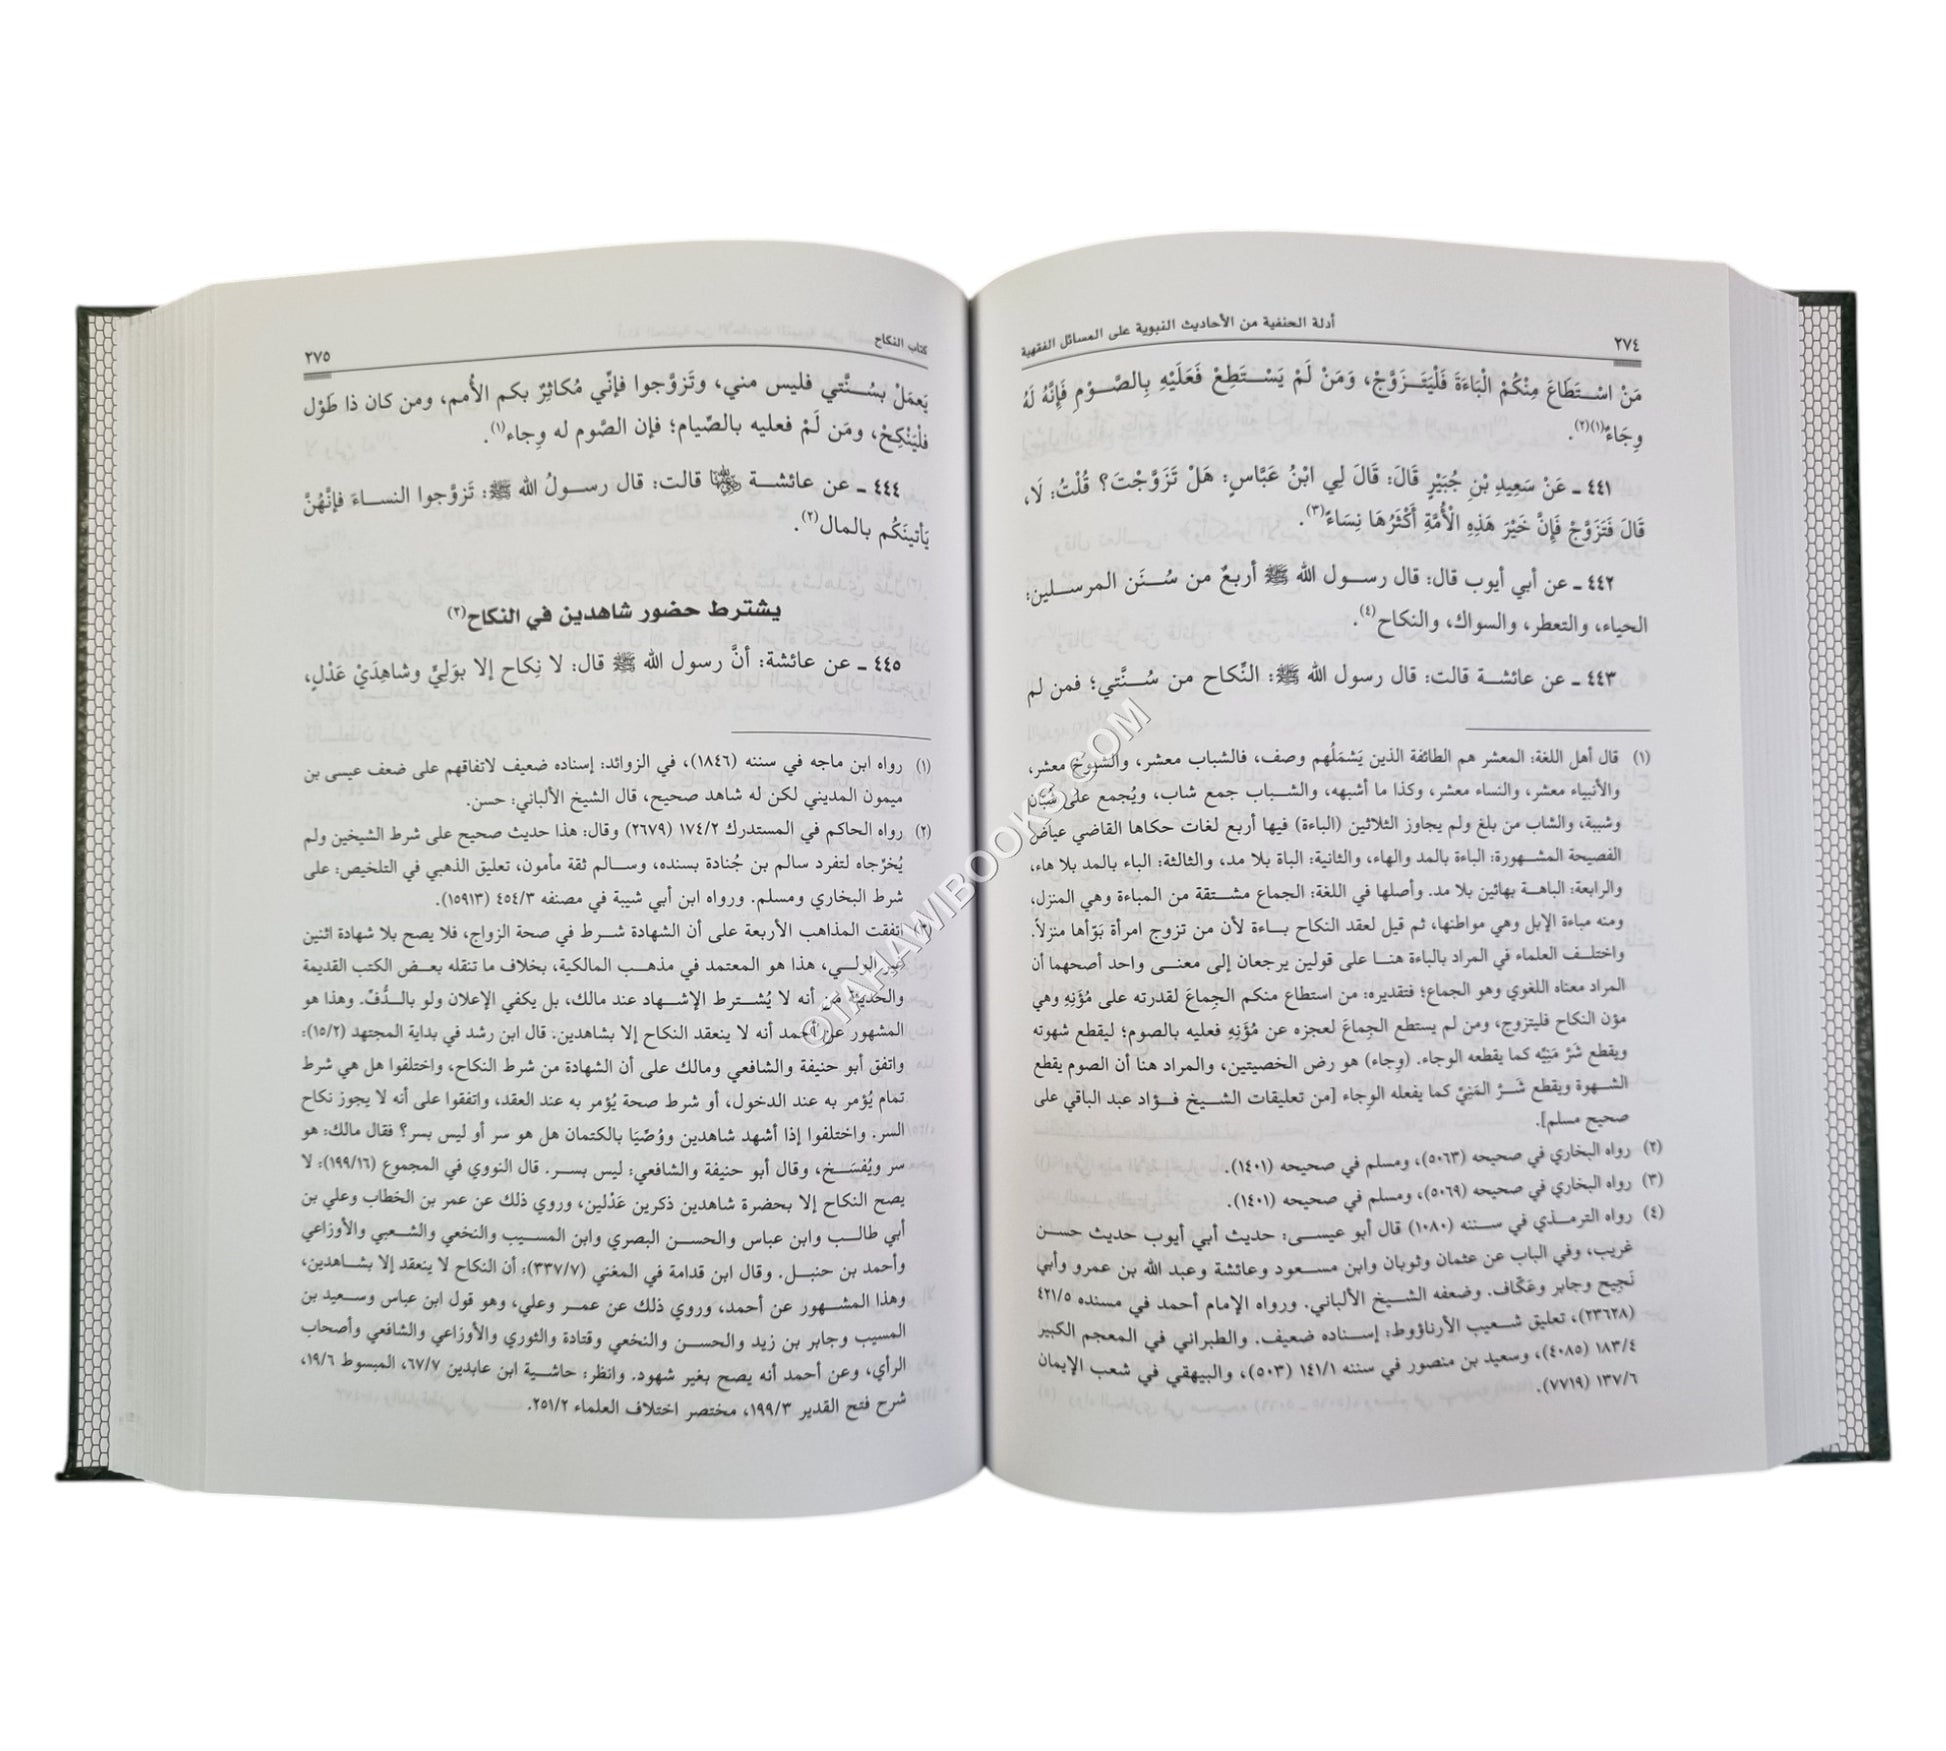 ٢٧٤
أدلة الحنفية من الأحاديث النبوية على المسائل الفقهية
مَنْ اسْتَطَاعَ مِنْكُمْ الْبَاءَةَ فَلْيَتَزَوَّجْ، وَمَنْ لَمْ يَسْتَطِعْ فَعَلَيْهِ بِالصَّوْمِ فَإِنَّهُ لَهُ
وِجَاءٌ(١)(٢).
٤٤١ ـ عَنْ سَعِيدِ بْنِ جُبَيْرٍ قَالَ: قَالَ لِي ابْنُ عَبَّاسٍ: هَلْ تَزَوَّجْتَ؟ قُلْتُ: لَا،
قَالَ فَتَزَوَّجْ فَإِنَّ خَيْرَ هَذِهِ الْأُمَّةِ أَكْثَرُهَا نِسَاءً(٣).
٤٤٢ ـ عن أبي أيوب قال: قال رسول الله ﷺ أربعٌ من سُنَن المرسلين:
الحياء، والتعطر، والسواك، والنكاح(٤).
٤٤٣ ـ عن عائشة قالت: قال رسول الله ﷺ: النِّكاح من سُنَّتي؛ فمن لم
(١) قال أهل اللغة: المعشر هم الطائفة الذين يَشمَلُهم وصف، فالشباب معشر، والشيوخ معشر،
والأنبياء معشر، والنساء معشر، وكذا ما أشبهه، والشباب جمع شاب، ويُجمع على شُبَّان
وشببة، والشاب من بلغ ولم يجاوز الثلاثين (الباءة) فيها أربع لغات حكاها القاضي عياض
الفصيحة المشهورة: الباءة بالمد والهاء، والثانية: الباة بلا مد، والثالثة: الباء بالمد بلا هاء،
والرابعة: الباهة بهائين بلا مد. وأصلها في اللغة: الجماع مشتقة من المباءة وهي المنزل،
ومنه مباءة الإبل وهي مواطنها، ثم قيل لعقد النكاح باءة لأن من تزوج امرأة بَوّأها منزلاً.
واختلف العلماء في المراد بالباءة هنا على قولين يرجعان إلى معنى واحد أصحهما أن
المراد معناه اللغوي وهو الجماع؛ فتقديره: من استطاع منكم الجِماعَ لقدرته على مُؤَنِهِ وهي
مؤن النكاح فليتزوج، ومن لم يستطع الجِماعَ لعجزه عن مُؤَنِهِ فعليه بالصوم؛ ليقطع شهوته
ويقطع شَرَّ مَنِيِّه كما يقطعه الوجاء. (وِجاء) هو رض الخصيتين، والمراد هنا أن الصوم يقطع
الشهوة ويقطع شَرَّ المَنِيِّ كما يفعله الوِجاء [من تعليقات الشيخ فؤاد عبد الباقي على
صحيح مسلم].
(٢) رواه البخاري في صحيحه (٥٠٦٣)، ومسلم في صحيحه (١٤٠١).
(٣) رواه البخاري في صحيحه (٥٠٦٩)، ومسلم في صحيحه (١٤٠١).
(٤) رواه الترمذي في سننه (١٠٨٠) قال أبو عيسى: حديث أبي أيوب حديث حسن
غريب، وفي الباب عن عثمان وثوبان وابن مسعود وعائشة وعبد الله بن عمرو وأبي
نَجيح وجابر وعَكّاف. وضعفه الشيخ الألباني. ورواه الإمام أحمد في مسنده ٤٢١/٥
(٢٣٦٢٨)، تعليق شعيب الأرناؤوط: إسناده ضعيف. والطبراني في المعجم الكبير
١٨٣/٤ (٤٠٨٥)، وسعيد بن منصور في سننه ١٤١/١ (٥٠٣)، والبيهقي في شعب الإيمان
١٣٧/٦ (٧٧١٩).
كتاب النكاح
٢٧٥
يَعمَلْ بسُنَّتي فليس مني، وتَزوَّجوا فإنِّي مُكاثِرٌ بكم الأُمم، ومن كان ذا طَوْل
فلْيَنْكِحْ، ومَن لَمْ فعليه بالصِّيام؛ فإن الصَّوم له وِجاء(١).
٤٤٤ ـ عن عائشة رضي الله عنها قالت: قال رسولُ الله ﷺ: تَزوَّجوا النساءَ فإنَّهُنَّ
يَأتينَكُم بالمال(٢).
يشترط حضور شاهدين في النكاح(٣)
٤٤٥ ـ عن عائشة: أنَّ رسول الله ﷺ قال: لا نِكاح إلا بوَليٍّ وشاهِدَيْ عَدْلٍ،
(١) رواه ابن ماجه في سننه (١٨٤٦)، في الزوائد: إسناده ضعيف لاتفاقهم على ضعف عيسى بن
ميمون المديني لكن له شاهد صحيح، قال الشيخ الألباني: حسن.
(٢) رواه الحاكم في المستدرك ١٧٤/٢ (٢٦٧٩) وقال: هذا حديث صحيح على شرط الشيخين ولم
يُخرّجاه لتفرد سالم بن جُنادة بسنده، وسالم ثقة مأمون، تعليق الذهبي في التلخيص: على
شرط البخاري ومسلم. ورواه ابن أبي شيبة في مصنفه ٤٥٤/٣ (١٥٩١٣).
(٣) اتفقت المذاهب الأربعة على أن الشهادة شرط في صحة الزواج، فلا يصح بلا شهادة اثنين
غير الولي، هذا هو المعتمد في مذهب المالكية، بخلاف ما تنقله بعض الكتب القديمة
والحديثة من أنه لا يُشترط الإشهاد عند مالك، بل يكفي الإعلان ولو بالدُّفّ. وهذا هو
المشهور عن أحمد أنه لا ينعقد النكاح إلا بشاهدين. قال ابن رشد في بداية المجتهد (١٥/٢):
واتفق أبو حنيفة والشافعي ومالك على أن الشهادة من شرط النكاح، واختلفوا هل هي شرط
تمام يُؤمر به عند الدخول، أو شرط صحة يُؤمر به عند العقد، واتفقوا على أنه لا يجوز نكاح
السر. واختلفوا إذا أشهد شاهدين ووُصِّيَا بالكتمان هل هو سر أو ليس بسر؟ فقال مالك: هو
سر ويُفسَخ، وقال أبو حنيفة والشافعي: ليس بسر. قال النووي في المجموع (١٩٩/١٦): لا
يصح النكاح إلا بحضرة شاهدين ذكرين عَدْلين، وروي ذلك عن عمر بن الخطاب وعلي بن
أبي طالب وابن عباس والحسن البصري وابن المسيب والنخعي والشعبي والأوزاعي
وأحمد بن حنبل. وقال ابن قدامة في المغني (٣٣٧/٧): أن النكاح لا ينعقد إلا بشاهدين،
وهذا المشهور عن أحمد، وروي ذلك عن عمر وعلي، وهو قول ابن عباس وسعيد بن
المسيب وجابر بن زيد والحسن والنخعي وقتادة والثوري والأوزاعي والشافعي وأصحاب
الرأي، وعن أحمد أنه يصح بغير شهود. وانظر: حاشية ابن عابدين ٦٧/٧، المبسوط ١٩/٦،
شرح فتح القدير ١٩٩/٣، مختصر اختلاف العلماء ٢٥١/٢.
©TAHAWIBOOKS.COM